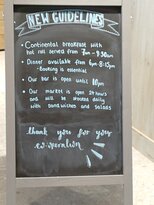 NEW GUIDELINES
• Continental breakfast with
hot roll served from 7am - 9.30am
• Dinner available from 6pm - 8:15pm
- Booking is essential
• Our bar is open until 10pm
• Our market is open 24 hours
and will be stocked daily
with sandwiches and salads
thank you for your
co-operation